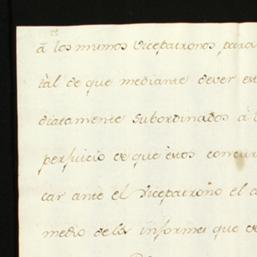 á los mismos Vicepatronos, para
tal de que mediante dever es
diatamente subordinados á l
perjuicio de que éstos concur
car ante el Vicepatrono el a
medio de los informes que e